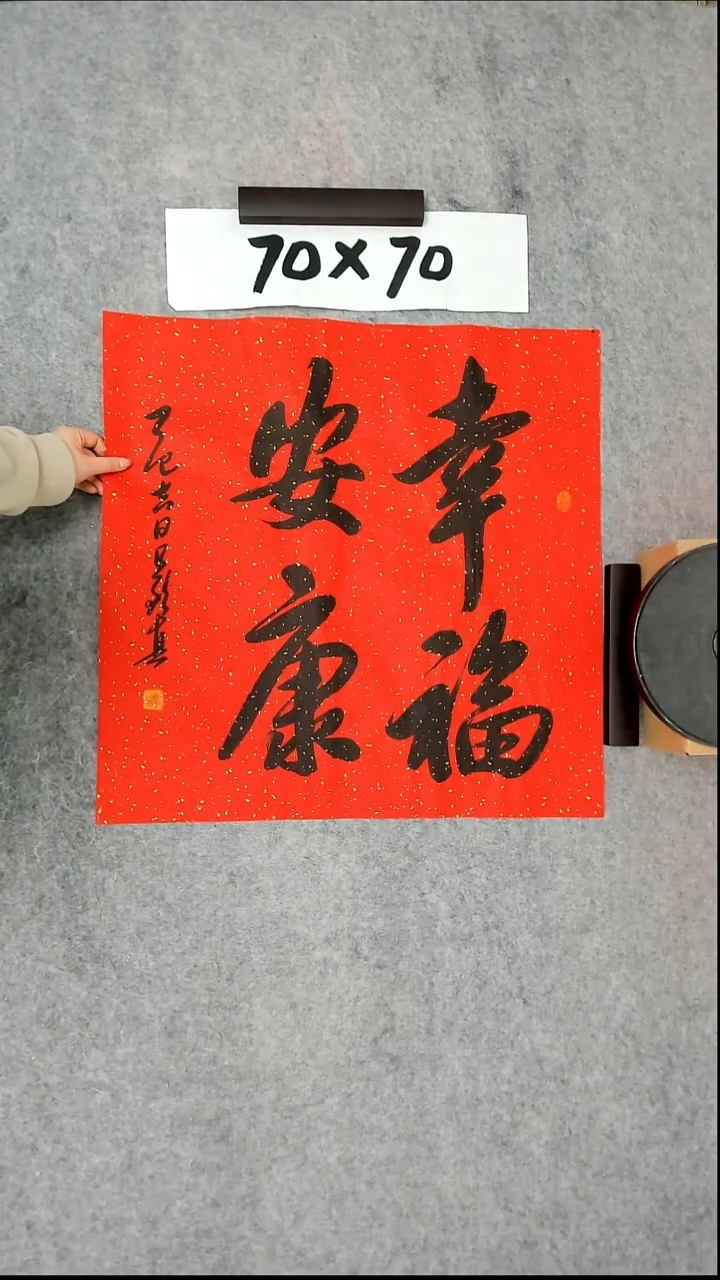 70×70
幸福
安康
乙巳吉日